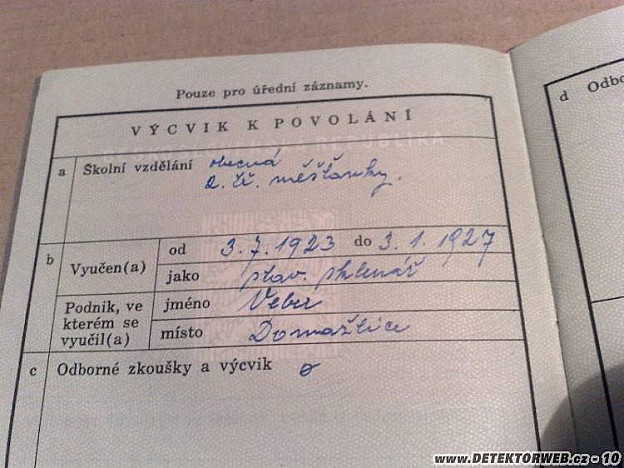 Pouze pro úřední záznamy.
VÝCVIK K POVOLÁNÍ
REPUBLIKA
a Školní vzdělání obecná
2. tř. měšťanky.
b Vyučen(a) od 3.7.1923 do 3.1.1927
jako stav. sklenář
Podnik, ve kterém se vyučil(a) jméno Veber
místo Domažlice
c Odborné zkoušky a výcvik
d Odbo
www.DETEKTORWEB.cz - 10